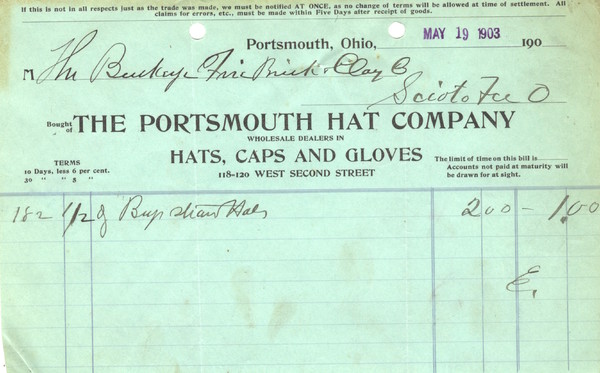 If this is not in all respects just as the trade was made, we must be notified AT ONCE, as no change of terms will be allowed at time of settlement. All
claims for errors, etc., must be made within Five Days after receipt of goods.
Portsmouth, Ohio, MAY 19 1903 190
M The Buckeye Fire Brick & Clay Co
Scioto Fce O
Bought of THE PORTSMOUTH HAT COMPANY
WHOLESALE DEALERS IN
HATS, CAPS AND GLOVES
118-120 WEST SECOND STREET
TERMS
10 Days, less 6 per cent.
30 " " 5 "
The limit of time on this bill is
Accounts not paid at maturity will be drawn for at sight.
182 1/2 Boys straw Hats 200 - 1.00
E.